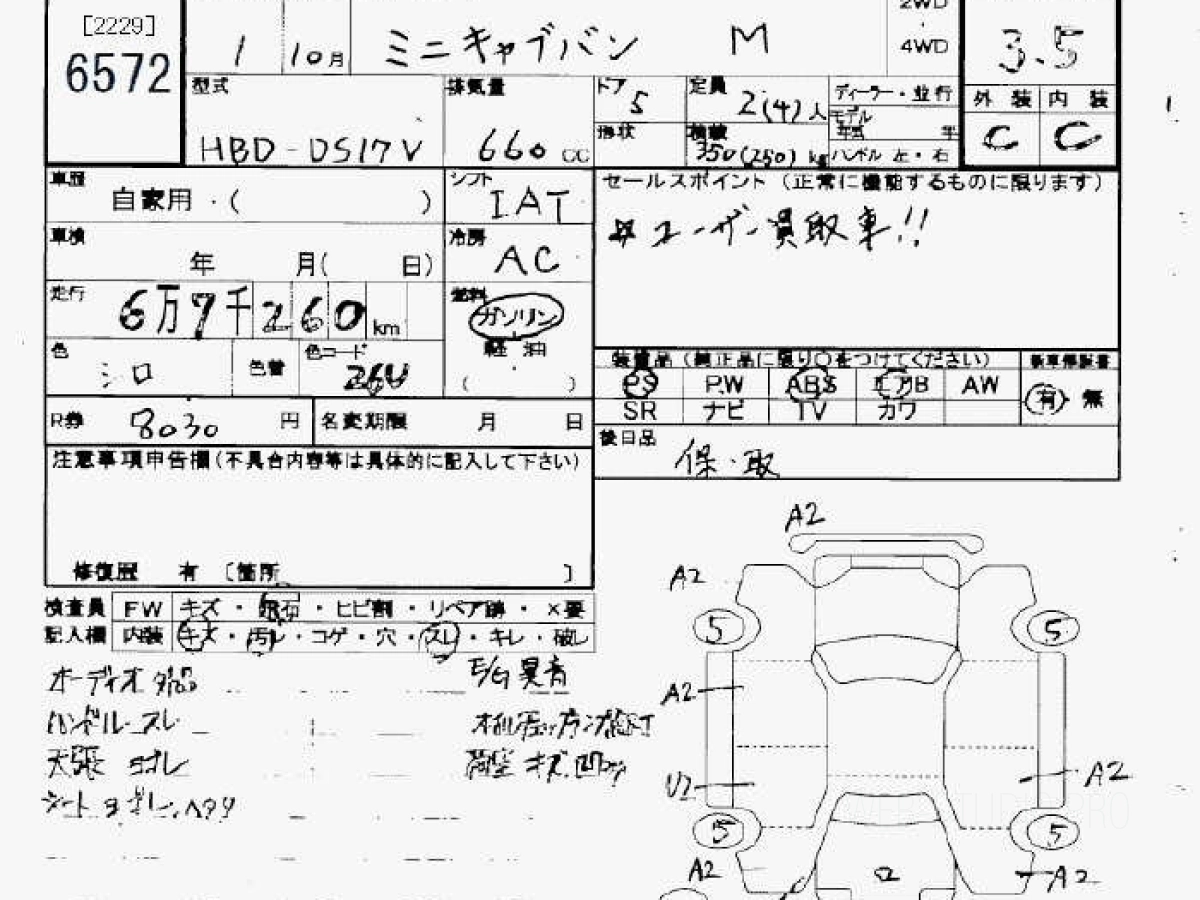 [2229]
6572
1 10月 ミニキャブバン M
2WD
・
4WD
3.5
型式
HBD-DS17V
排気量
660 CC
ドア
5
形状
定員
2(4)人
積載
350(250) kg
ディーラー・並行
モデル
年式 年
ハンドル 左・右
外装 内装
C C
車歴
自家用・( )
シフト
IAT
車検
年 月( 日)
冷房
AC
走行
6万7千260 km
燃料
ガソリン
軽油
( ・ )
色
シロ
色替
色コード
26U
R券 8030 円
名変期限 月 日
セールスポイント (正常に機能するものに限ります)
☆ユーザー買取車!!
装備品 (純正品に限り○をつけてください)
新車保証書
PS PW ABS エアB AW
有・無
SR ナビ TV カワ
後日品
保・取
注意事項申告欄(不具合内容等は具体的に記入して下さい)
修復歴 有 〔箇所 〕
検査員
記入欄
FW キズ・飛石・ヒビ割・リペア跡・×要
内装 キズ・汚レ・コゲ・穴・スレ・キレ・破レ
オーディオ欠品
ハンドルスレ
天張 ヨゴレ
シートヨゴレ、ヘタリ
E/G 異音
オイル
荷室 キズ凹
A2
A2
5 5
A2
U2
A2
5 5
A2
A2